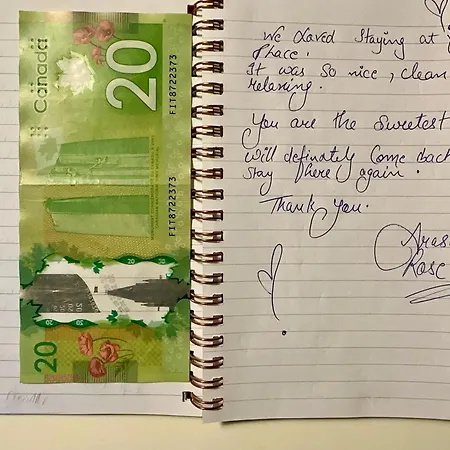 Canada
20
FIT8722373
FIT8722373
20
20
20
20
We Loved Staying at
Place.
It was so nice, clean
relaxing.
You are the sweetest
will definately come back
stay here again.
Thank you.
Rose